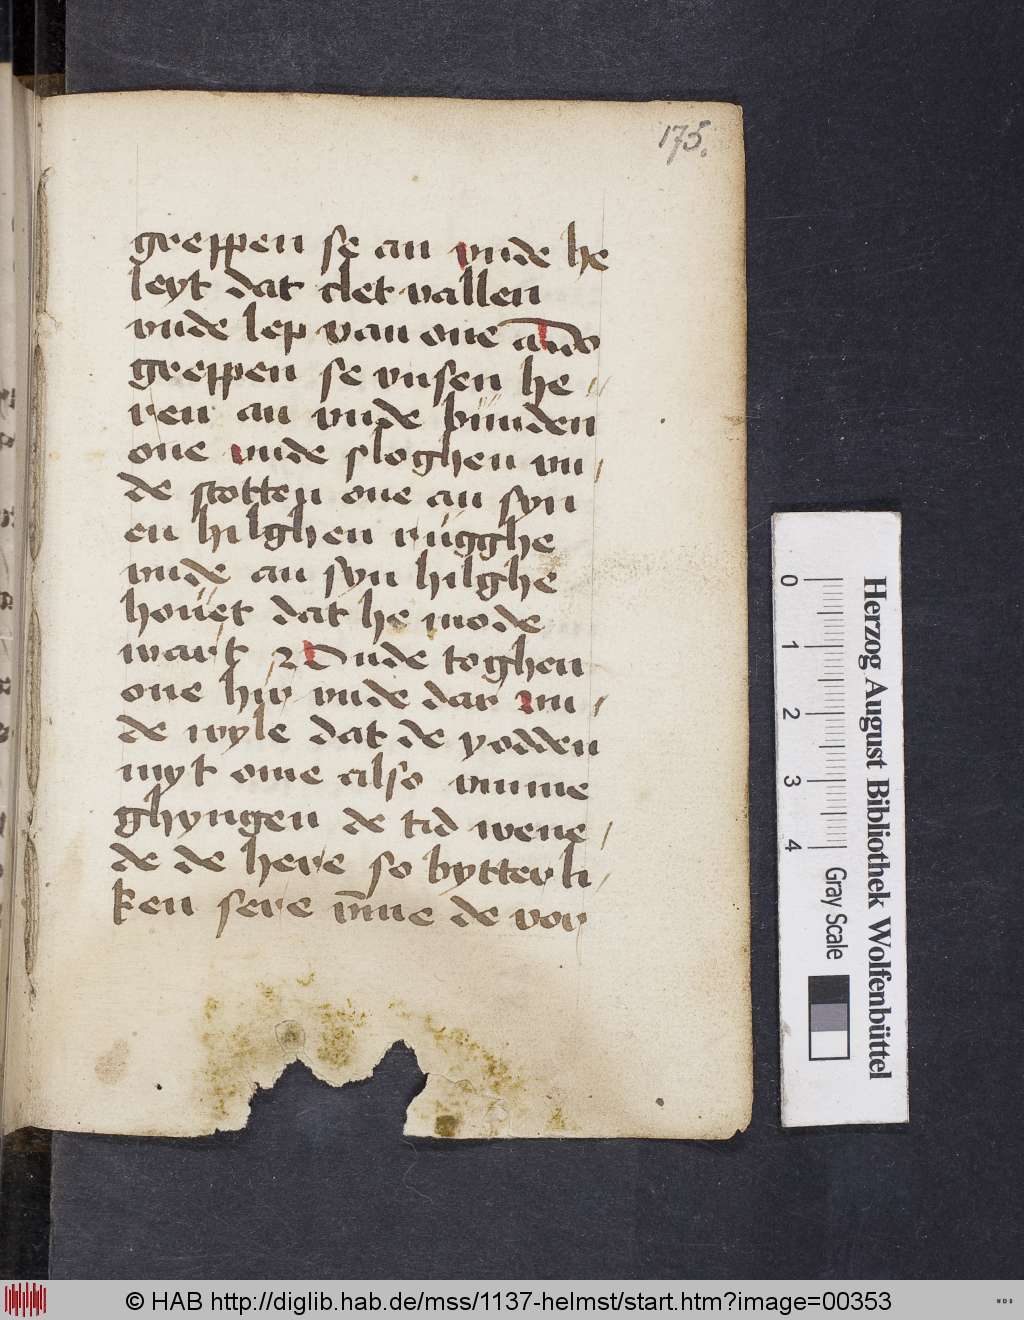 175.
greppen se an vnde he
leyt dat clet vallen
vnde lep van one Do
greppen se vnsen he //
ren an vnde bunden
one vnde sloghen vn /
de stotten one an syn
en hilghen rugghe
vnde an syn hilghe
houet dat he mode
wart Vnde toghen
one hir vnde dar vn /
de wyle dat de yodden
myt ome also vmme
ghyngen de tid wene /
de de here so bytterli /
ken sere vm̄e de vor
Herzog August Bibliothek Wolfenbüttel
0 1 2 3 4
Gray Scale
© HAB http://diglib.hab.de/mss/1137-helmst/start.htm?image=00353